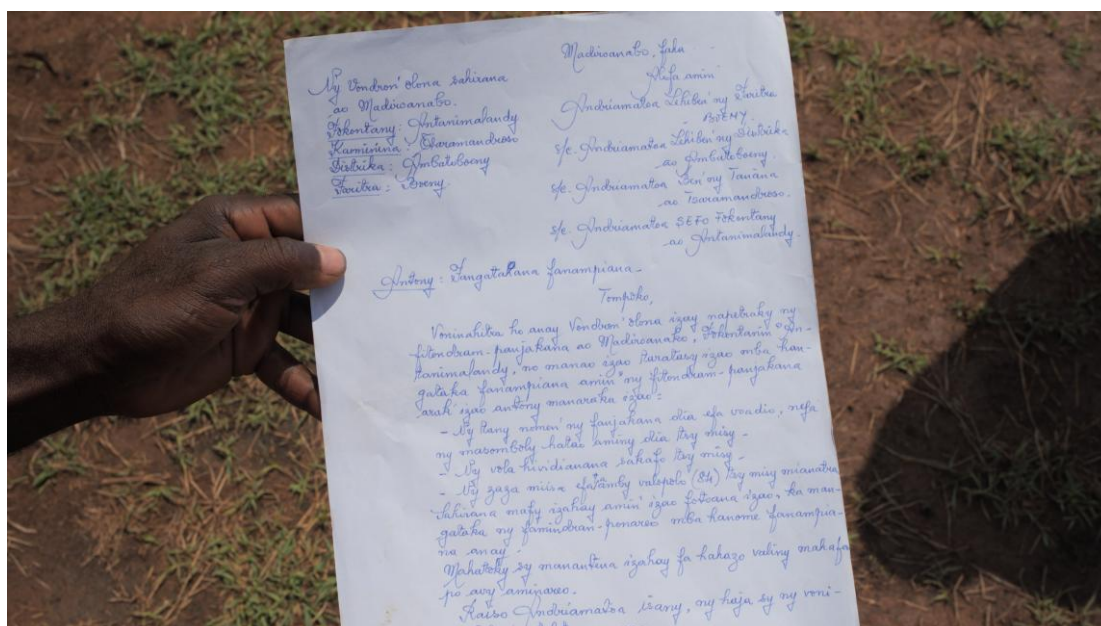 Ny Vondron'olona sahirana
ao Madiroanabo.
Fokontany: Antanimalandy
Kaominina: Tsaramandroso
Distrika: Ambatoboeny
Faritra: Boeny.
Madiroanabo, faha
Alefa amin'
Andriamatoa Lehiben'ny Faritra
BOENY.
s/c. Andriamatoa Lehiben'ny Distrika
ao Ambatoboeny.
s/c. Andriamatoa Ben'ny Tanàna
ao Tsaramandroso.
s/c. Andriamatoa SEFO Fokontany
ao Antanimalandy.
Antony: Fangatahana fanampiana.
Tompoko,
Voninahitra ho anay Vondron'olona izay napetraky ny
fitondram-panjakana ao Madiroanabo, Fokontanin'An-
tanimalandy, no manao izao taratasy izao mba han-
gataka fanampiana amin'ny fitondram-panjakana
arak'izao antony manaraka izao:
- Ny tany nomen'ny fanjakana dia efa voadio, nefa
ny masomboly hatao aminy dia tsy misy.
- Ny vola hividianana sakafo tsy misy.
- Ny zaza miisa efatramby valopolo (84) tsy misy mianatra
Sahirana mafy izahay amin'izao fotoana izao, ka man-
gataka ny famindram-ponareo mba hanome fanampia-
na anay.
Mahatoky sy manantena izahay fa hahazo valiny mahafa
po avy aminareo.
Raiso Andriamatoa isany, ny haja sy ny voni-